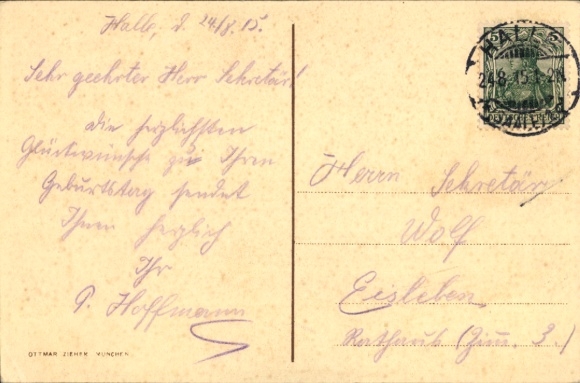 Halle, d. 24./8. 15.
Sehr geehrter Herr Sekretär!
Die herzlichsten
Glückwünsche zu Ihren
Geburtstag sendet
Ihnen herzlich
Ihr
P. Hoffmann
OTTMAR ZIEHER, MÜNCHEN.
HALLE
24.8.15.1-2N.
(SAALE)
Herrn Sekretär
Wolf
Eisleben
Rathaus (Zim. 3.)